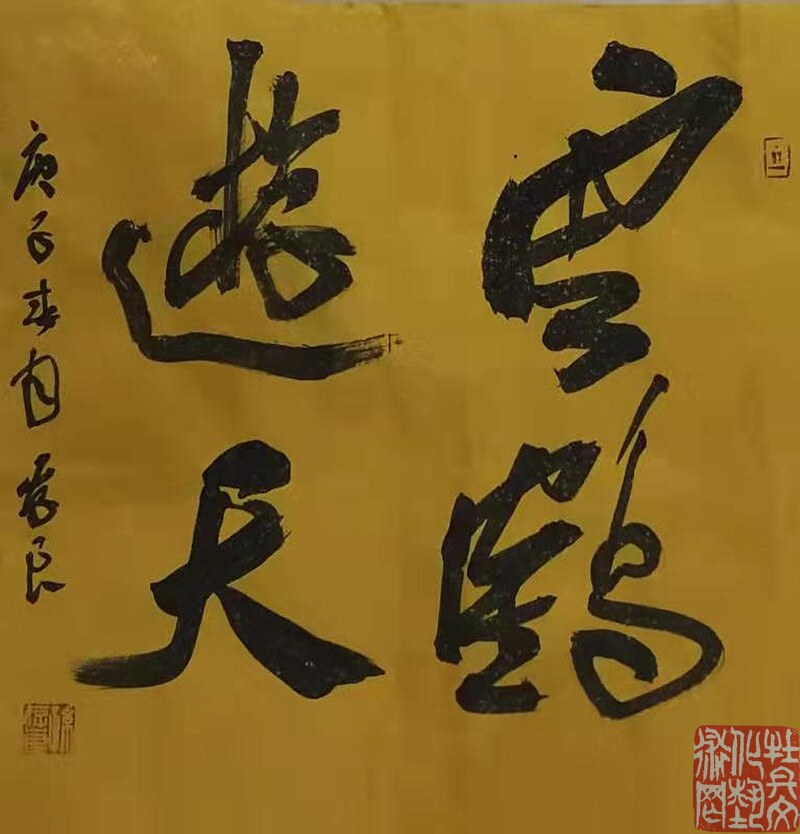 雲鶴
遊天
庚子春月 良